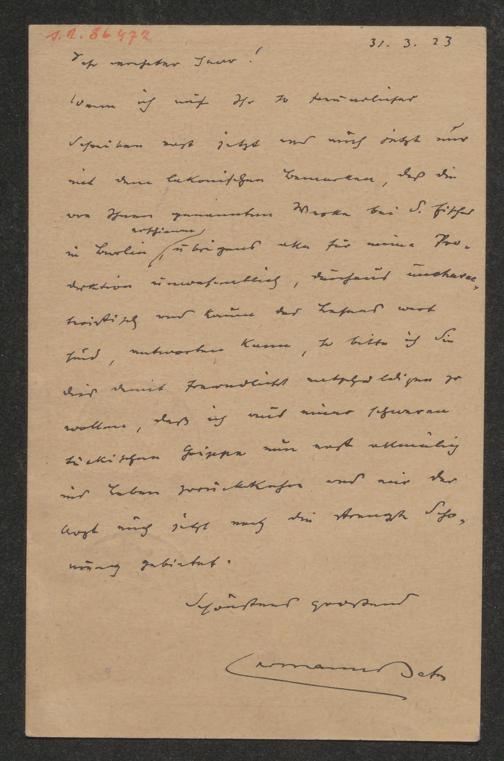 I.N. 86472
31. 3. 23
Sehr verehrter Herr!
Wenn ich auf Ihr so freundliches
Schreiben erst jetzt und auch jetzt nur
mit dem lakonischen Bemerken, daß die
von Ihnen genannten Werke bei S. Fischer
in Berlin erschienen, übrigens aber für meine Pro-
duktion unwesentlich, durchaus uncharak-
teristisch und kaum des Lesens wert
sind, antworten kann, so bitte ich Sie
dies damit freundlichst entschuldigen zu
wollen, daß ich aus einer schweren
tückischen Grippe nun erst allmälig
ins Leben zurückkehre und mir der
Arzt auch jetzt noch die strengste Scho-
nung gebietet.
Schönstens grüssend
Hermann Bahr